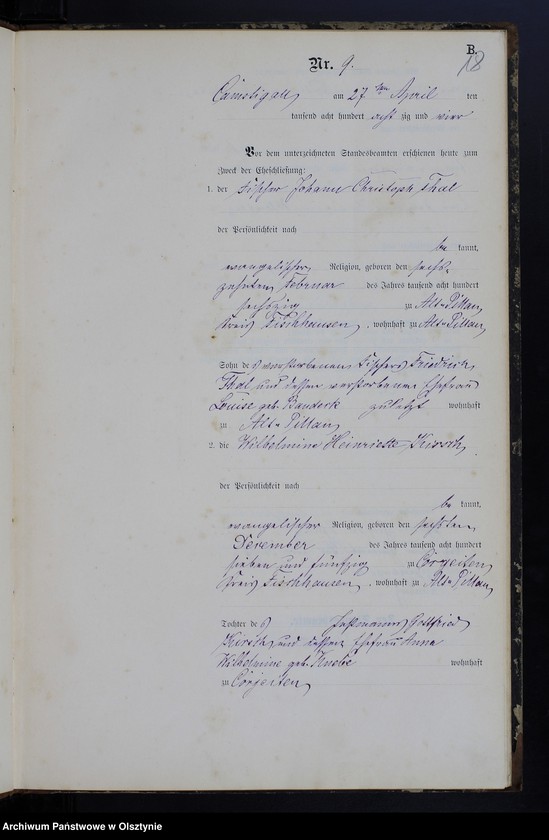 B.
18
Nr. 9.
Camstigall am 27ten April ten
tausend acht hundert acht zig und vier
Vor dem unterzeichneten Standesbeamten erschienen heute zum
Zweck der Eheschließung:
1. der Fischer Johann Christoph Thal
der Persönlichkeit nach
be kannt,
evangelischer Religion, geboren den sechs-
zehnten Februar des Jahres tausend acht hundert
sechszig zu Alt-Pillau,
Kreis Fischhausen, wohnhaft zu Alt-Pillau,
Sohn des verstorbenen Fischers Friedrich
Thal und dessen verstorbenen Ehefrau
Louise geb. zuletzt wohnhaft
zu Alt-Pillau,
2. die Wilhelmine Henriette Kirsch,
der Persönlichkeit nach
be kannt,
evangelischer Religion, geboren den sechsten
December des Jahres tausend acht hundert
sieben und fünfzig zu Görjeiten,
Kreis Fischhausen, wohnhaft zu Alt-Pillau,
Tochter des Gottfried
Kirsch und dessen Ehefrau Anna
Wilhelmine geb. wohnhaft
zu Görjeiten,
Archiwum Państwowe w Olsztynie